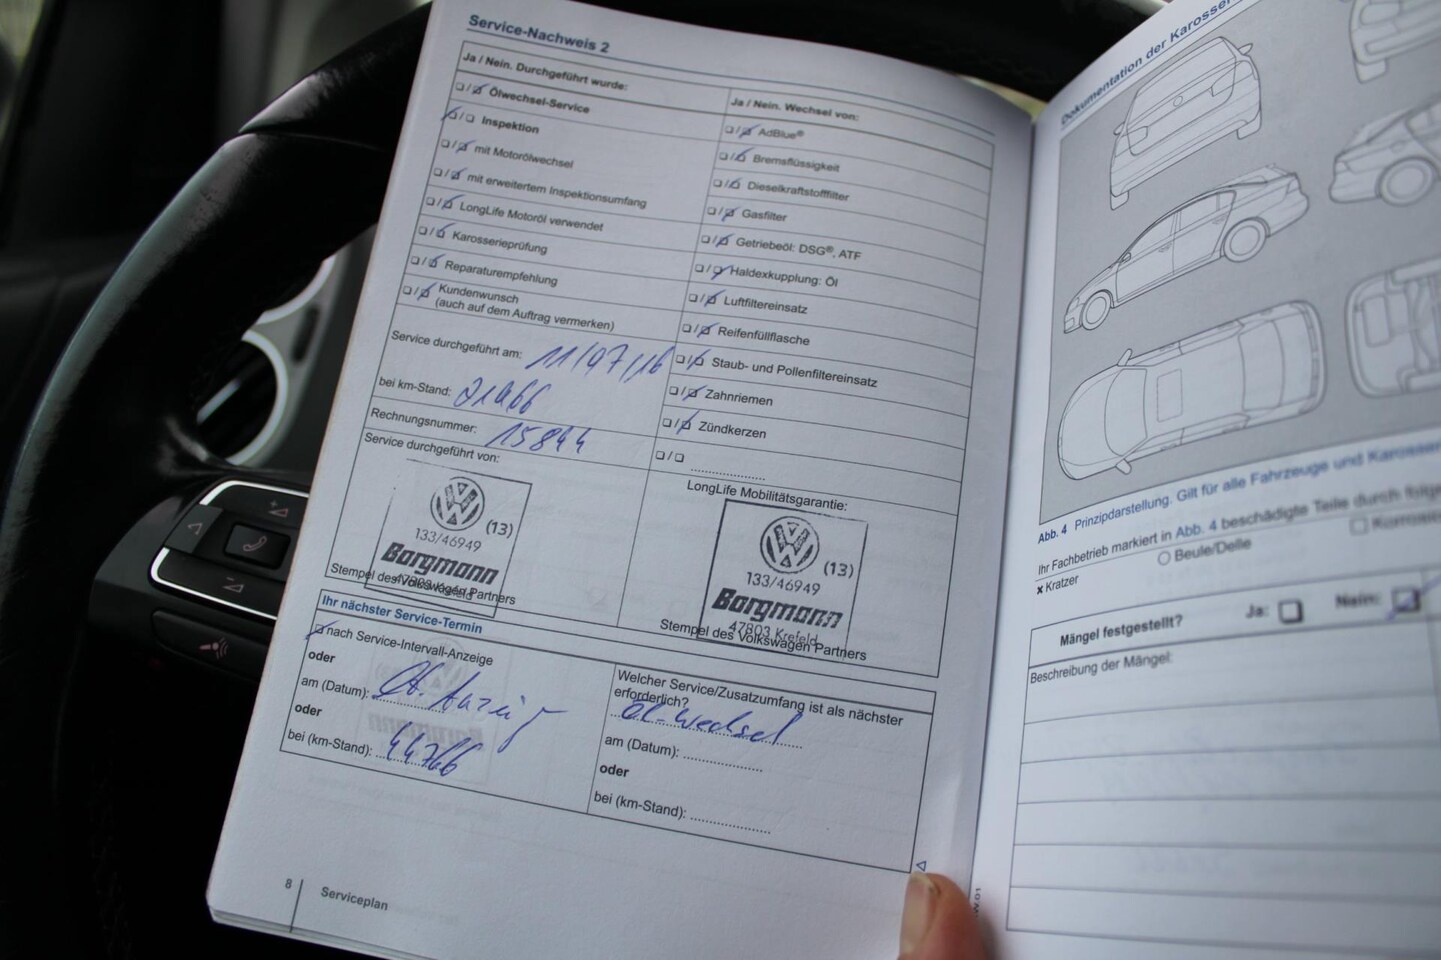 Service-Nachweis 2
Ja / Nein. Durchgeführt wurde:
Ölwechsel-Service
Inspektion
mit Motorölwechsel
mit erweitertem Inspektionsumfang
LongLife Motoröl verwendet
Karosserieprüfung
Reparaturempfehlung
Kundenwunsch
(auch auf dem Auftrag vermerken)
Service durchgeführt am: 11/07/16
bei km-Stand: 21966
Rechnungsnummer: 15844
Service durchgeführt von:
(13)
133/46949
Borgmann
47803 Krefeld
Stempel des Volkswagen Partners
Ja / Nein. Wechsel von:
AdBlue®
Bremsflüssigkeit
Dieselkraftstofffilter
Gasfilter
Getriebeöl: DSG®, ATF
Haldexkupplung: Öl
Luftfiltereinsatz
Reifenfüllflasche
Staub- und Pollenfiltereinsatz
Zahnriemen
Zündkerzen
LongLife Mobilitätsgarantie:
(13)
133/46949
Borgmann
47803 Krefeld
Stempel des Volkswagen Partners
Ihr nächster Service-Termin
nach Service-Intervall-Anzeige
oder
am (Datum):
oder
bei (km-Stand): 44766
Welcher Service/Zusatzumfang ist als nächster
erforderlich?
Öl-Wechsel
am (Datum):
oder
bei (km-Stand):
8
Serviceplan
Dokumentation der
Abb. 4 Prinzipdarstellung. Gilt für alle Fahrzeuge und
Ihr Fachbetrieb markiert in Abb. 4 beschädigte Teile durch
× Kratzer
Beule/Delle
Mängel festgestellt?
Ja:
Nein:
Beschreibung der Mängel: